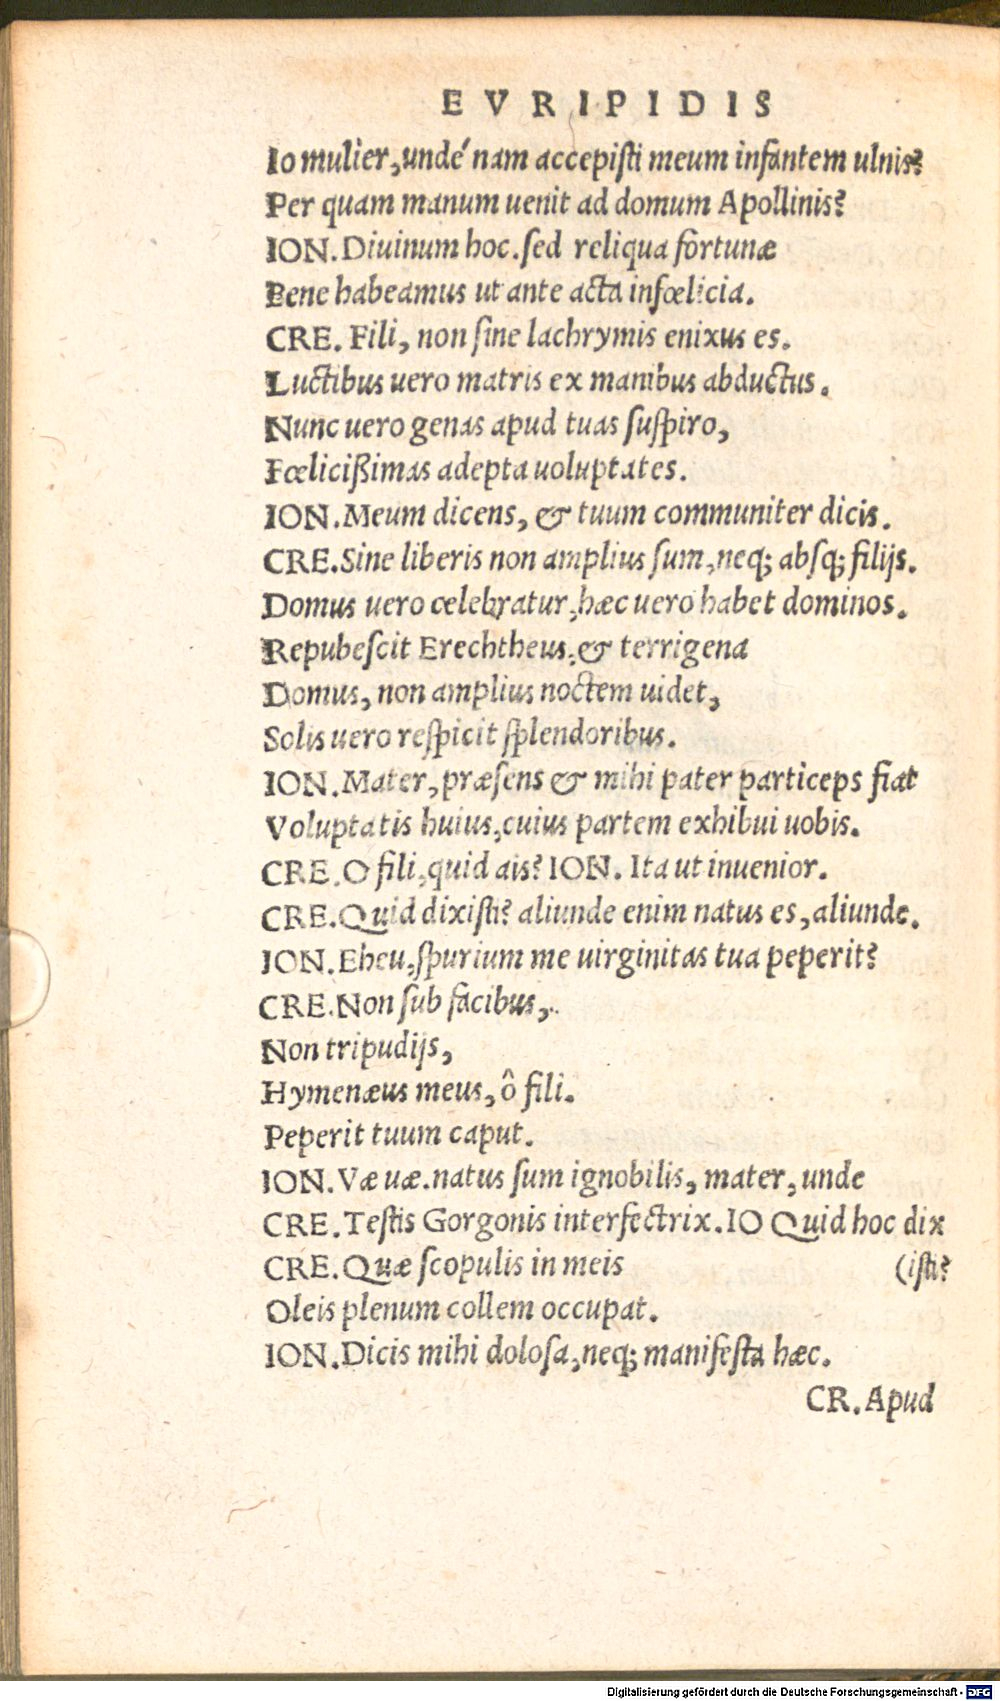 EVRIPIDIS
Io mulier, undé nam accepisti meum infantem ulnis?
Per quam manum uenit ad domum Apollinis?
ION. Diuinum hoc. sed reliqua fortunæ
Bene habeamus ut ante acta infœlicia.
CRE. Fili, non sine lachrymis enixus es.
Luctibus uero matris ex manibus abductus.
Nunc uero genas apud tuas suspiro,
Fœlicißimas adepta uoluptates.
ION. Meum dicens, & tuum communiter dicis.
CRE. Sine liberis non amplius sum, neq; absq; filijs.
Domus uero celebratur, hæc uero habet dominos.
Repubescit Erechtheus, & terrigena
Domus, non amplius noctem uidet,
Solis uero respicit splendoribus.
ION. Mater, præsens & mihi pater particeps fiat
Voluptatis huius, cuius partem exhibui uobis.
CRE. O fili, quid ais? ION. Ita ut inuenior.
CRE. Quid dixisti? aliunde enim natus es, aliunde.
ION. Eheu, spurium me uirginitas tua peperit?
CRE. Non sub facibus,
Non tripudijs,
Hymenæus meus, ô fili.
Peperit tuum caput.
ION. Væ uæ. natus sum ignobilis, mater, unde
CRE. Testis Gorgonis interfectrix. IO Quid hoc dix
CRE. Quæ scopulis in meis (isti?
Oleis plenum collem occupat.
ION. Dicis mihi dolosa, neq; manifesta hæc.
CR. Apud
Digitalisierung gefördert durch die Deutsche Forschungsgemeinschaft - DFG